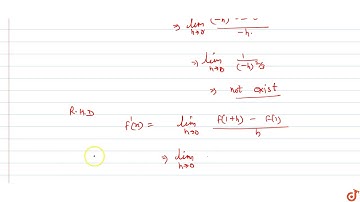 ⇒ lim h→0 (-h) / -h.
⇒ lim h→0 1 / (-h)
⇒ not exist
R.H.D
f'(x) = lim h→0 f(1+h) - f(1) / h
⇒ lim h→0